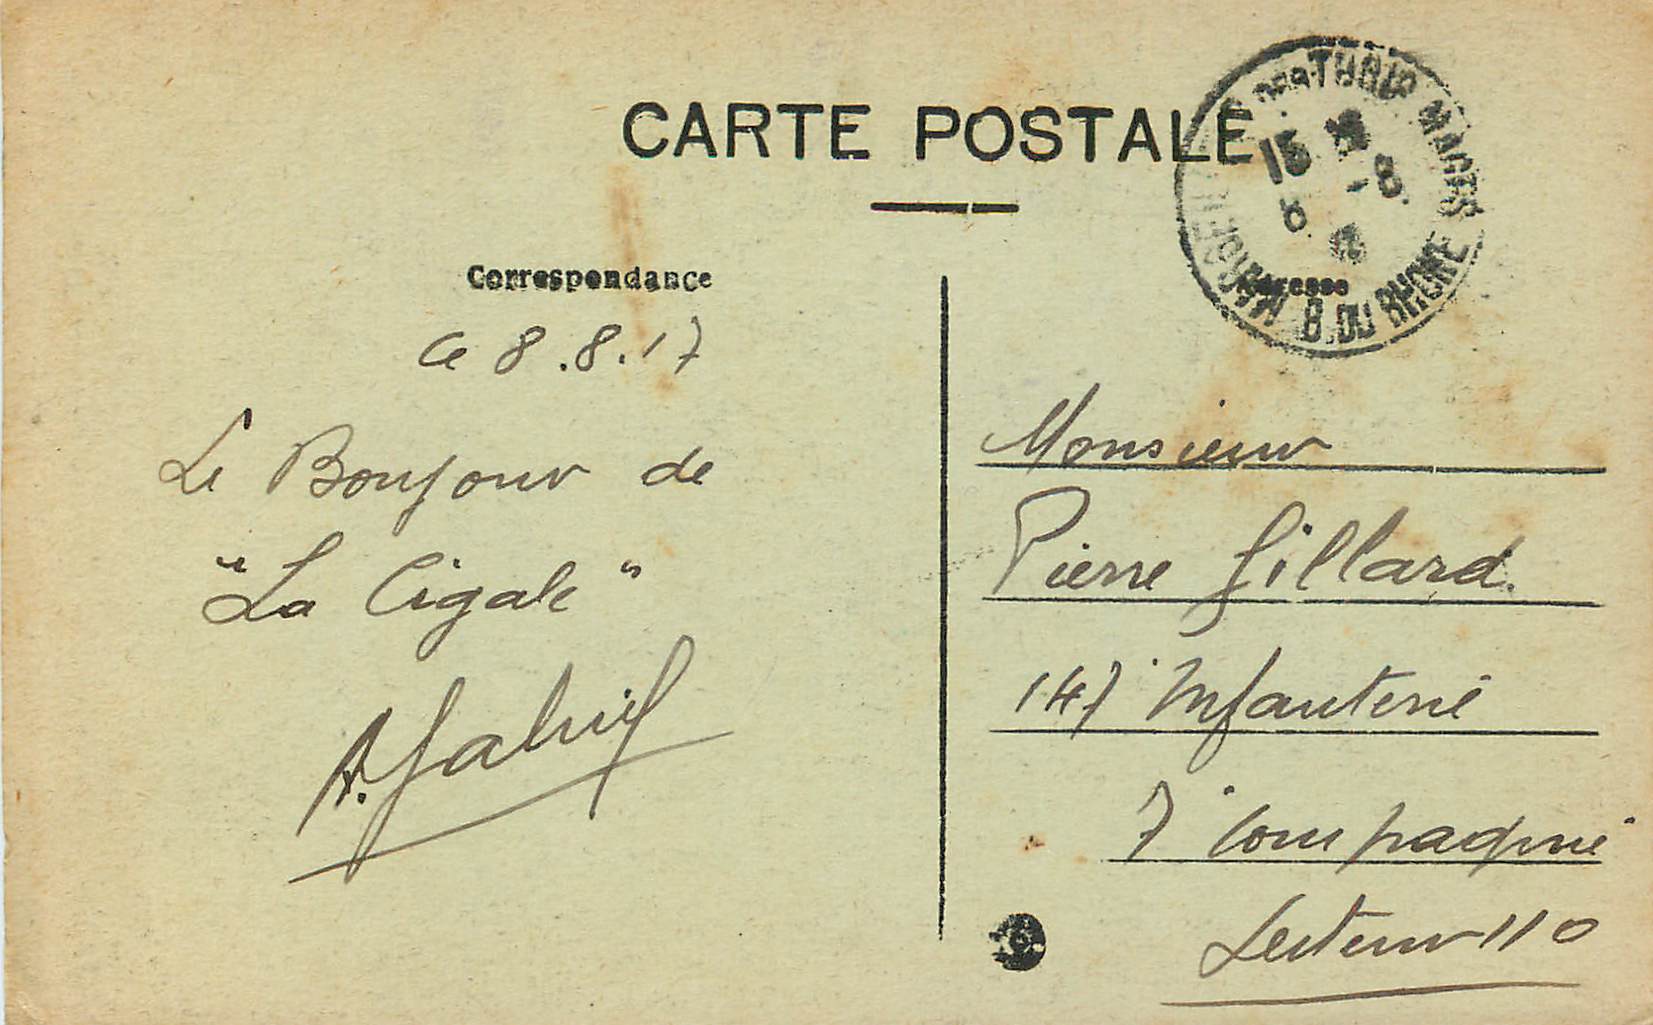 CARTE POSTALE
Correspondance
Ce 8.8.17
Le Bonjour de
"La Cigale"
A. Gabriel
15
8
-8.
B. DU RHONE
Adresse
Monsieur
Pierre Gillard
147 Infanterie
7 Compagnie
Secteur 110